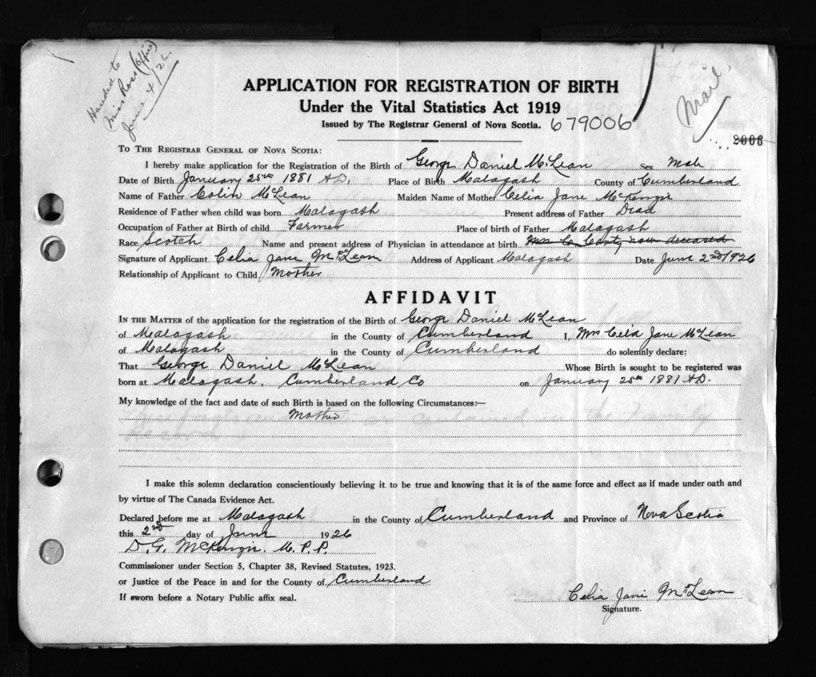 Handed to
Miss Ross (Office)
June 4/26
Mail
APPLICATION FOR REGISTRATION OF BIRTH
Under the Vital Statistics Act 1919
Issued by The Registrar General of Nova Scotia. 679006
2006
TO THE REGISTRAR GENERAL OF NOVA SCOTIA:
I hereby make application for the Registration of the Birth of George Daniel McLean Sex Male
Date of Birth January 25th 1881 A.D. Place of Birth Malagash County of Cumberland
Name of Father Colin McLean Maiden Name of Mother Celia Jane McKenzie
Residence of Father when child was born Malagash Present address of Father Dead
Occupation of Father at Birth of child Farmer Place of birth of Father Malagash
Race Scotch Name and present address of Physician in attendance at birth now deceased
Signature of Applicant Celia Jane McLean Address of Applicant Malagash Date June 2nd/1926
Relationship of Applicant to Child Mother
AFFIDAVIT
IN THE MATTER of the application for the registration of the Birth of George Daniel McLean
of Malagash in the County of Cumberland I, Mrs Celia Jane McLean
of Malagash in the County of Cumberland do solemnly declare:
That George Daniel McLean Whose Birth is sought to be registered was
born at Malagash, Cumberland Co on January 25th 1881 A.D.
My knowledge of the fact and date of such Birth is based on the following Circumstances:—
Mother
I make this solemn declaration conscientiously believing it to be true and knowing that it is of the same force and effect as if made under oath and
by virtue of The Canada Evidence Act.
Declared before me at Malagash in the County of Cumberland and Province of Nova Scotia
this 2nd day of June 1926
D. G. McKenzie. M. P. P.
Commissioner under Section 5, Chapter 38, Revised Statutes, 1923.
or Justice of the Peace in and for the County of Cumberland
If sworn before a Notary Public affix seal.
Celia Jane McLean
Signature.